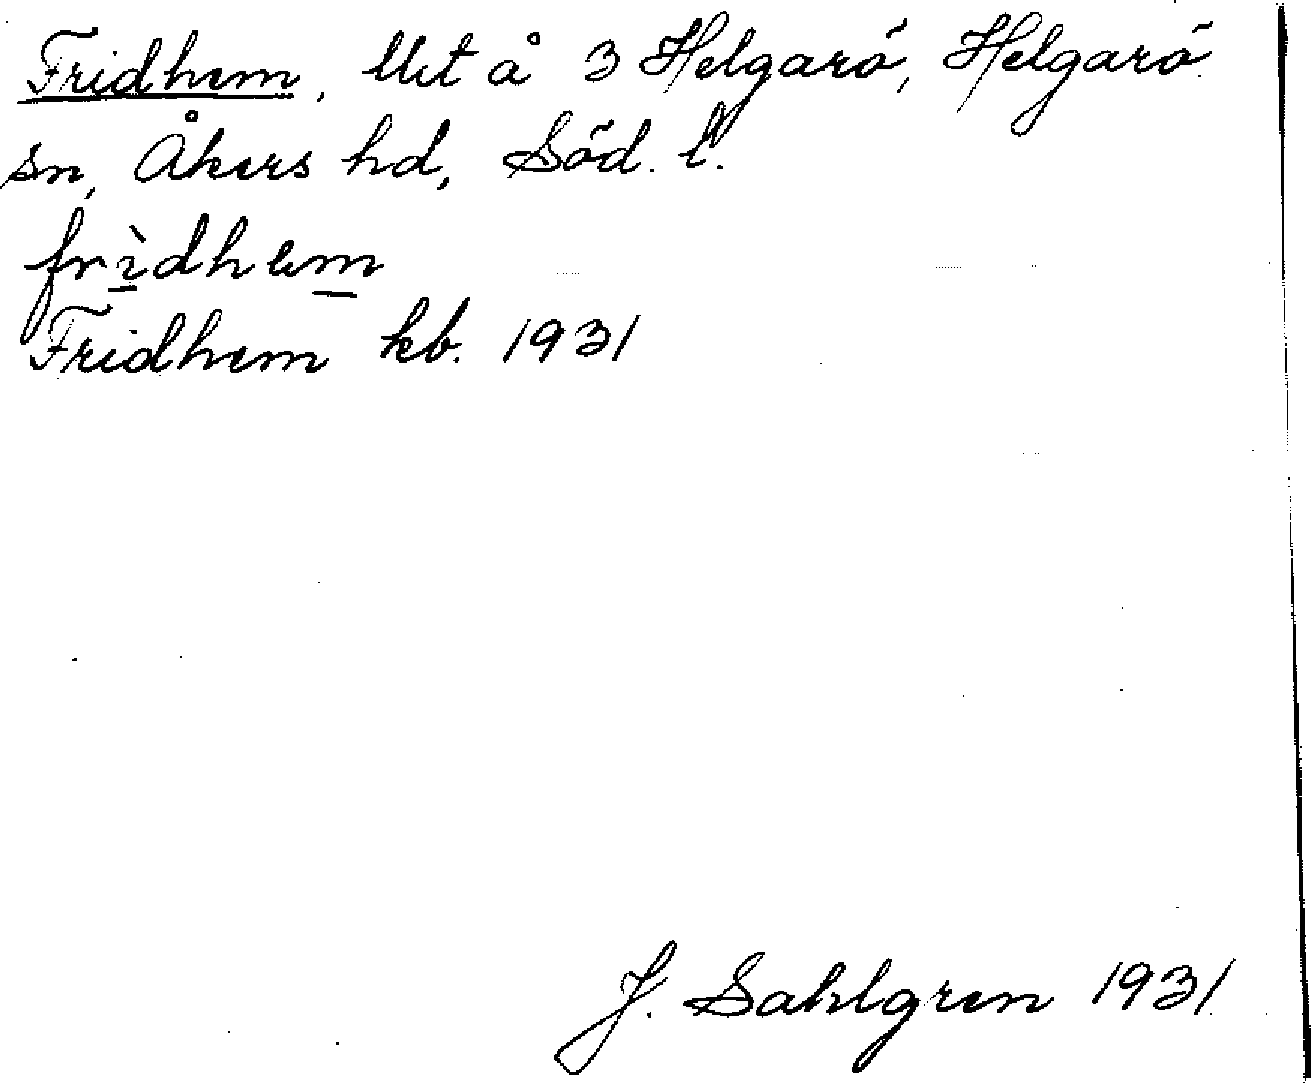 Fridhem, lht å 3 Helgarö, Helgarö
sn, Åkers hd, Söd. l.
frìdhem
Fridhem kb. 1931
J. Sahlgren 1931